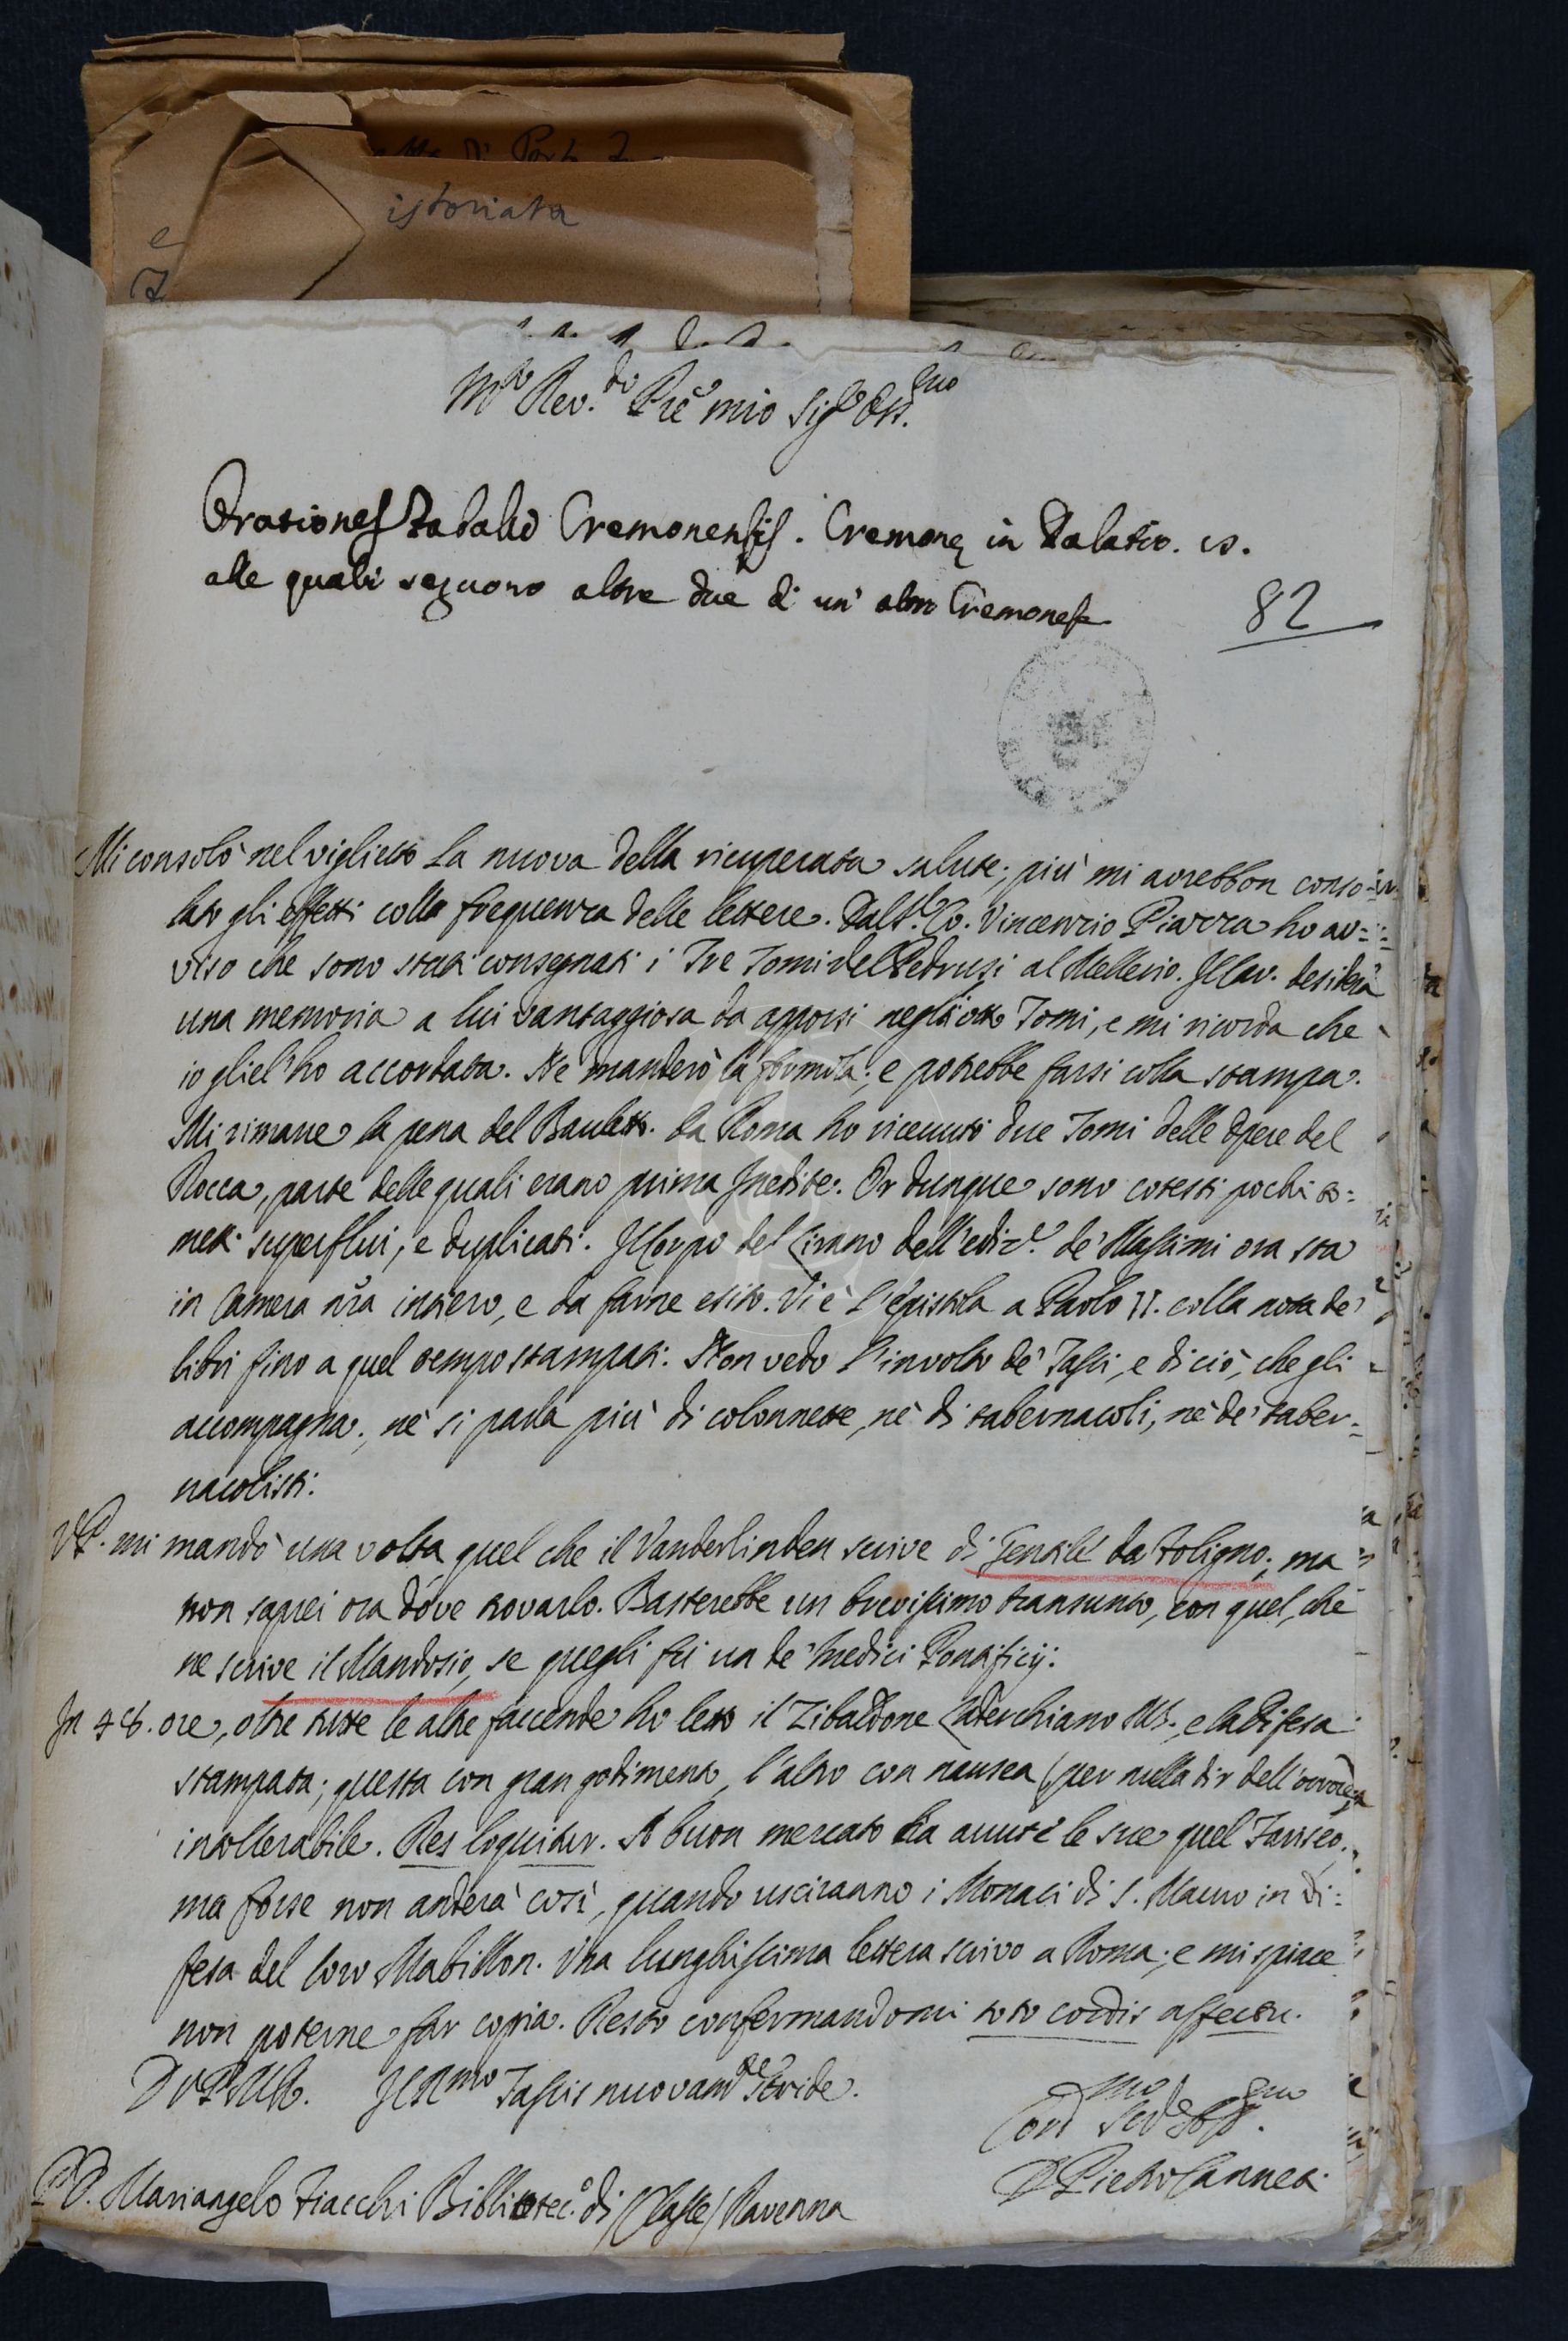 istoriata
e
M.to Rev.do Pre mio Sig.e Oss.mo
Orationes Cremonensis. Cremonę in Palatio. 15.
alle quali seguono altre due di un' altro Cremonese
82
Mi consolò nel viglietto la nuova della ricuperata salute; più mi avrebbon conso=
lato gli effetti colla frequenza delle lettere. Dal S.r Co. Vincenzio Piazza ho av=
viso che sono stati consegnati i Tre Tomi del Pedrusi al Mellerio. Il Cav. desidera
una memoria a lui vantaggiosa da apporsi negli otto Tomi, e mi ricorda che
io gliel'ho accordata. Ne manderò la formola; e potrebbe farsi colla stampa.
Mi rimane la pena del Bauletto. Da Roma ho ricevuti due Tomi delle Opere del
Rocca, parte delle quali erano prima Inedite. Or dunque sono cotesti pochi to=
meti superflui, e duplicati. Il Corpo del Lirano dell'ediz.e de' Massimi ora sta
in Camera nra intiero, e da farne esito. Vi è l'epistola a Paolo II. colla nota de'
libri fino a quel tempo stampati. Non vedo l'involto de' Tassi, e di ciò, che gli
accompagna; nè si parla più di colonnette, nè di tabernacoli, nè de' taber=
nacolisti.
V.P. mi mandò una volta quel che il Vanderlinden scrive di Gentile da Foligno; ma
non saprei ora dove trovarlo. Basterebbe un brevissimo transunto, con quel, che
ne scrive il Mandosio, se quegli fu un de' Medici Pontificij.
In 48. ore, oltre tutte le altre faccende ho letto il Zibaldone Laderchiano MS., e la Difesa
stampata; questa con gran godimento, l'altro con nausea (per nulla dir dell'orrore)
intollerabile. Res loquitur. A buon mercato ha avute le sue quel Fariseo,
ma forse non anderà così, quando usciranno i Monaci di S. Mauro in di=
fesa del loro Mabillon. Una lunghissima lettera scrivo a Roma; e mi spiace
non poterne far copia. Resto confermandomi toto cordis affectu.
D V P M R. Il R.mo Tassis nuovam.te stride.
Serv.e
D. Pietro Canneti
P.D. Mariangelo Fiacchi Bibliotec.o di Classe / Ravenna